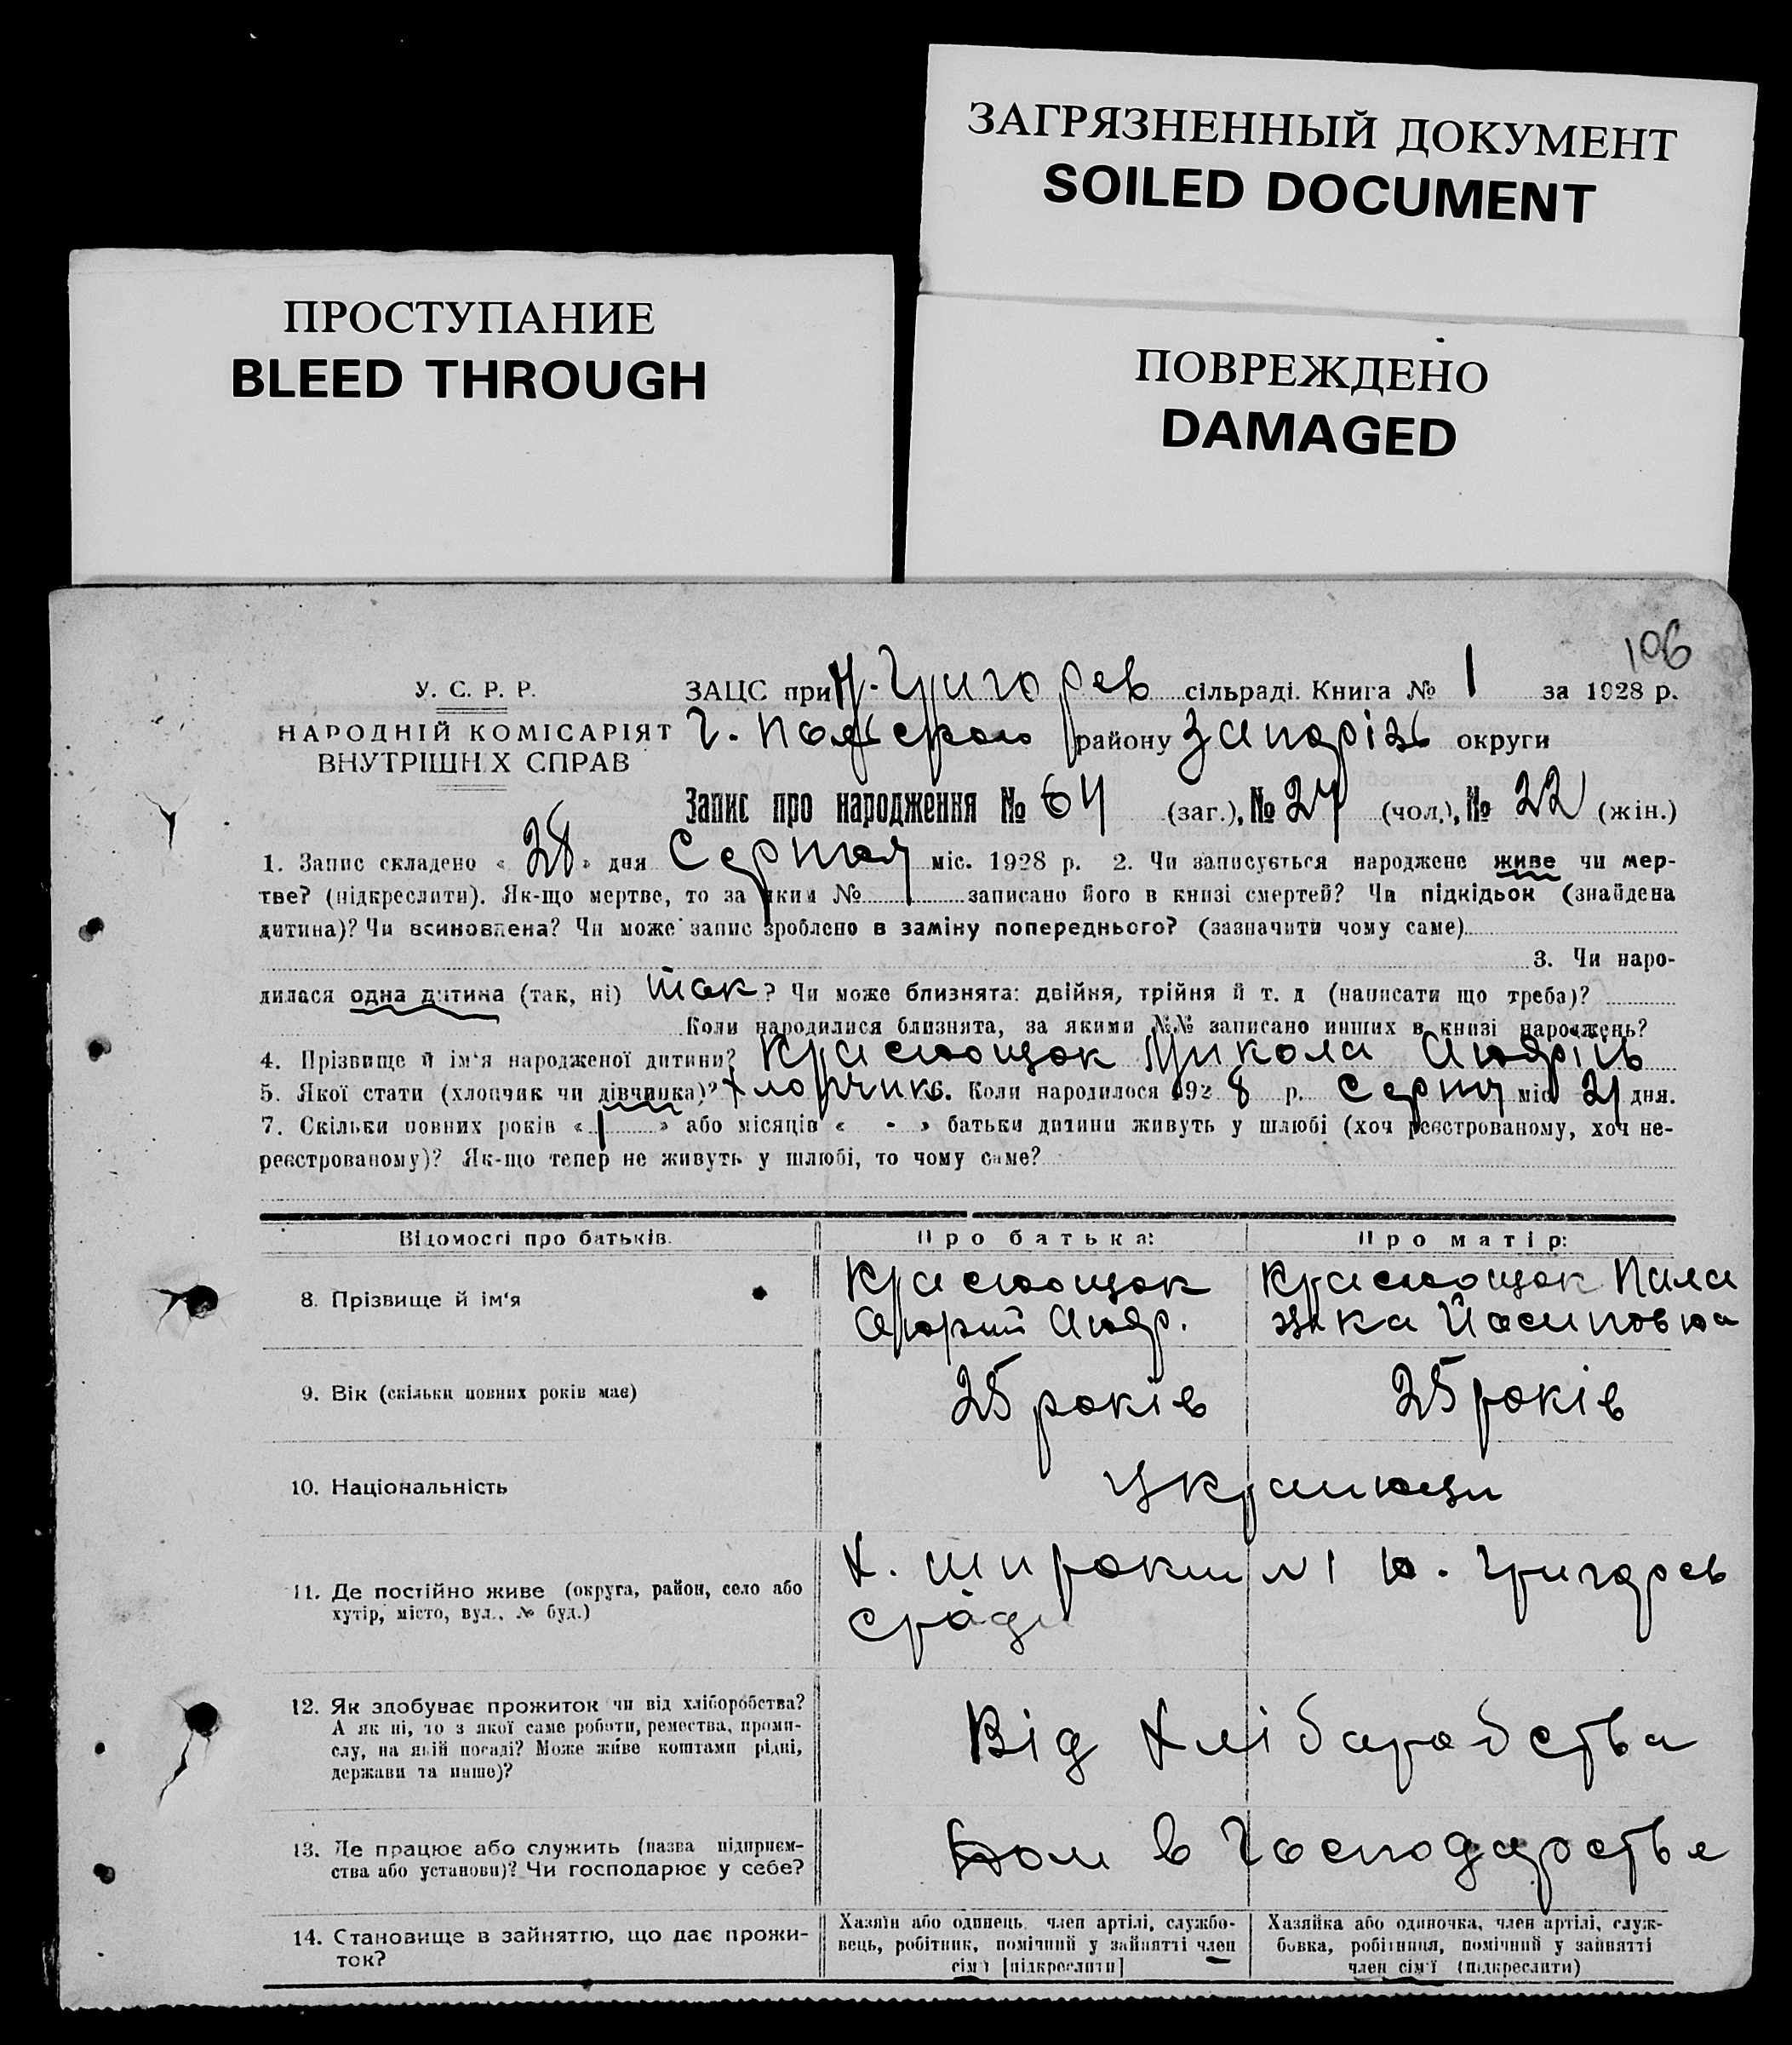 ЗАГРЯЗНЕННЫЙ ДОКУМЕНТ
SOILED DOCUMENT
ПРОСТУПАНИЕ
BLEED THROUGH
ПОВРЕЖДЕНО
DAMAGED
106
У. С. Р. Р.
НАРОДНІЙ КОМІСАРІЯТ
ВНУТРІШНІХ СПРАВ
ЗАЦС при Н. Григорев сільраді. Книга № 1 за 1928 р.
району Запоріз округи
Запис про народження № 64 (заг.), № 27 (чол.), № 22 (жін.)
1. Запис складено « 28 » дня Серпня міс. 1928 р. 2. Чи записується народжене живе чи мер-
тве? (підкреслити). Як-що мертве, то за яким № записано його в книзі смертей? Чи підкідьок (знайдена
дитина)? Чи всиновлена? Чи може запис зроблено в заміну попереднього? (зазначити чому саме)
3. Чи наро-
дилася одна дитина (так, ні) так? Чи може близнята: двійня, трійня й т. д (написати що треба)?
Коли народилися близнята, за якими №№ записано инших в книзі народжень?
4. Прізвище й ім'я народженої дитини? Краснощок Микола
5. Якої стати (хлопчик чи дівчинка)? Хлопчик 6. Коли народилося 1928 р. Серпня міс 21 дня.
7. Скільки повних років « 1 » або місяців « - » батьки дитини живуть у шлюбі (хоч реєстрованому, хоч не-
реєстрованому)? Як-що тепер не живуть у шлюбі, то чому саме?
Відомості про батьків. Про батька: Про матір:
8. Прізвище й ім'я
Краснощок
Андр.
Краснощок Пала
жка Йосиповна
9. Вік (скільки повних років має) 25 років 25 років
10. Національність Українци
11. Де постійно живе (округа, район, село або
хутір, місто, вул., № буд.)
Х. Широкий № 1 Н. Григорев
сради
12. Як здобуває прожиток чи від хліборобства?
А як ні, то з якої саме роботи, ремества, проми-
слу, на якій посаді? Може живе коштами рідні,
держави та инше)?
Від Хліборобства
13. Де працює або служить (назва підприєм-
ства або установи)? Чи господарює у себе?
в Господарстве
14. Становище в зайняттю, що дає прожи-
ток?
Хазяїн або одинець, член артілі, службо-
вець, робітник, помічний у зайнятті член
сім'ї [підкреслити]
Хазяйка або одиночка, член артілі, служ-
бовка, робітниця, помічний у зайнятті
член сім'ї (підкреслити)